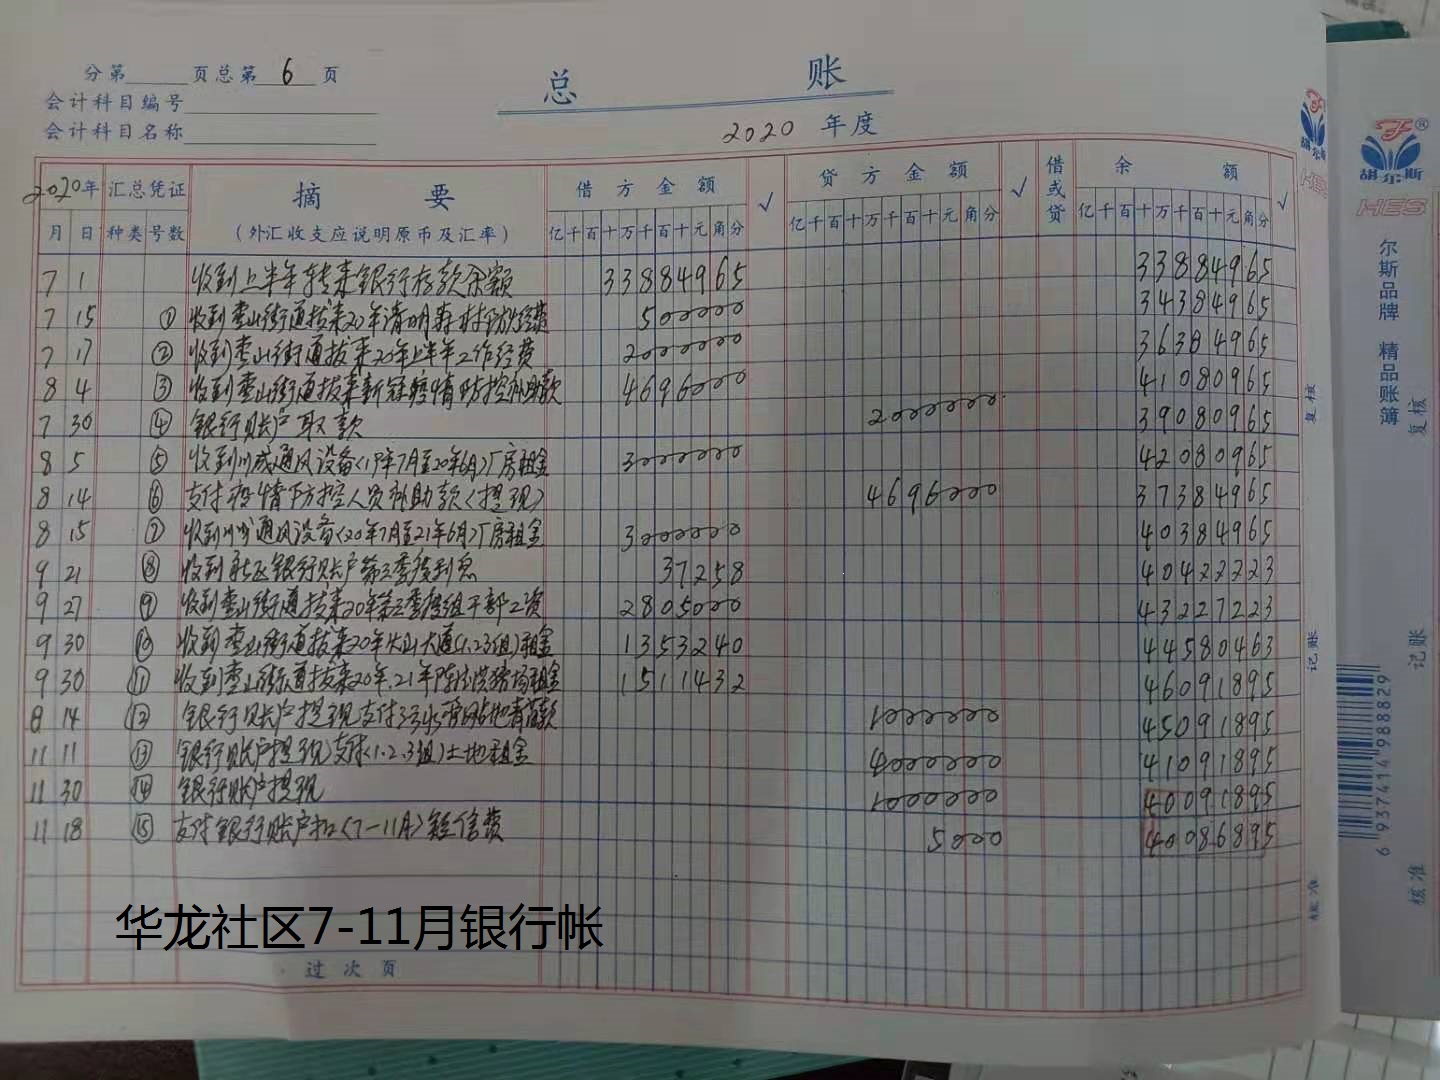 分第 页总第 6 页
会计科目编号
会计科目名称
总 账
2020 年度
2020年 汇总凭证 摘 要 借方金额 √ 贷方金额 √ 借或贷 余 额 √
月 日 种类 号数 (外汇收支应说明原币及汇率) 亿千百十万千百十元角分 亿千百十万千百十元角分 亿千百十万千百十元角分
7 1 收到上半年转来银行存款余额 33884965 33884965
7 15 ① 收到 山街道拨来20年清明 经费 500000 34384965
7 17 ② 收到 山街道拨来20年上半年工作经费 2000000 36384965
8 4 ③ 收到 山街道拨来新冠疫情防控补助款 4696000 41080965
7 30 ④ 银行账户取款 2000000 39080965
8 5 ⑤ 收到川成通风设备(19年7月至20年6月)厂房租金 3000000 42080965
8 14 ⑥ 支付疫情防控人员补助款(提现) 4696000 37384965
8 15 ⑦ 收到川成通风设备(20年7月至21年6月)厂房租金 3000000 40384965
9 21 ⑧ 收到 银行账户第三季度利息 37258 40422223
9 27 ⑨ 收到 山街道拨来20年第三季度组干部工资 2805000 43227223
9 30 ⑩ 收到 山街道拨来20年火山大道(1.2.3组)租金 1353240 44580463
9 30 ⑪ 收到 山街道拨来20年.21年陈 猪场租金 1511432 46091895
8 14 ⑫ 银行账户提现支付污水管网占地青苗款 1000000 45091895
11 11 ⑬ (银行账户提现)支付(1.2.3组)土地租金 4000000 41091895
11 30 ⑭ 银行账户提现 1000000 40091895
11 18 ⑮ 支付银行账户扣(7-11月)短信费 5000 40086895
华龙社区7-11月银行帐
过次页
复核
记账
核准
胡尔斯
HES
胡尔斯
HES
尔斯品牌 精品账簿
复核
记账
核准
6937414988829